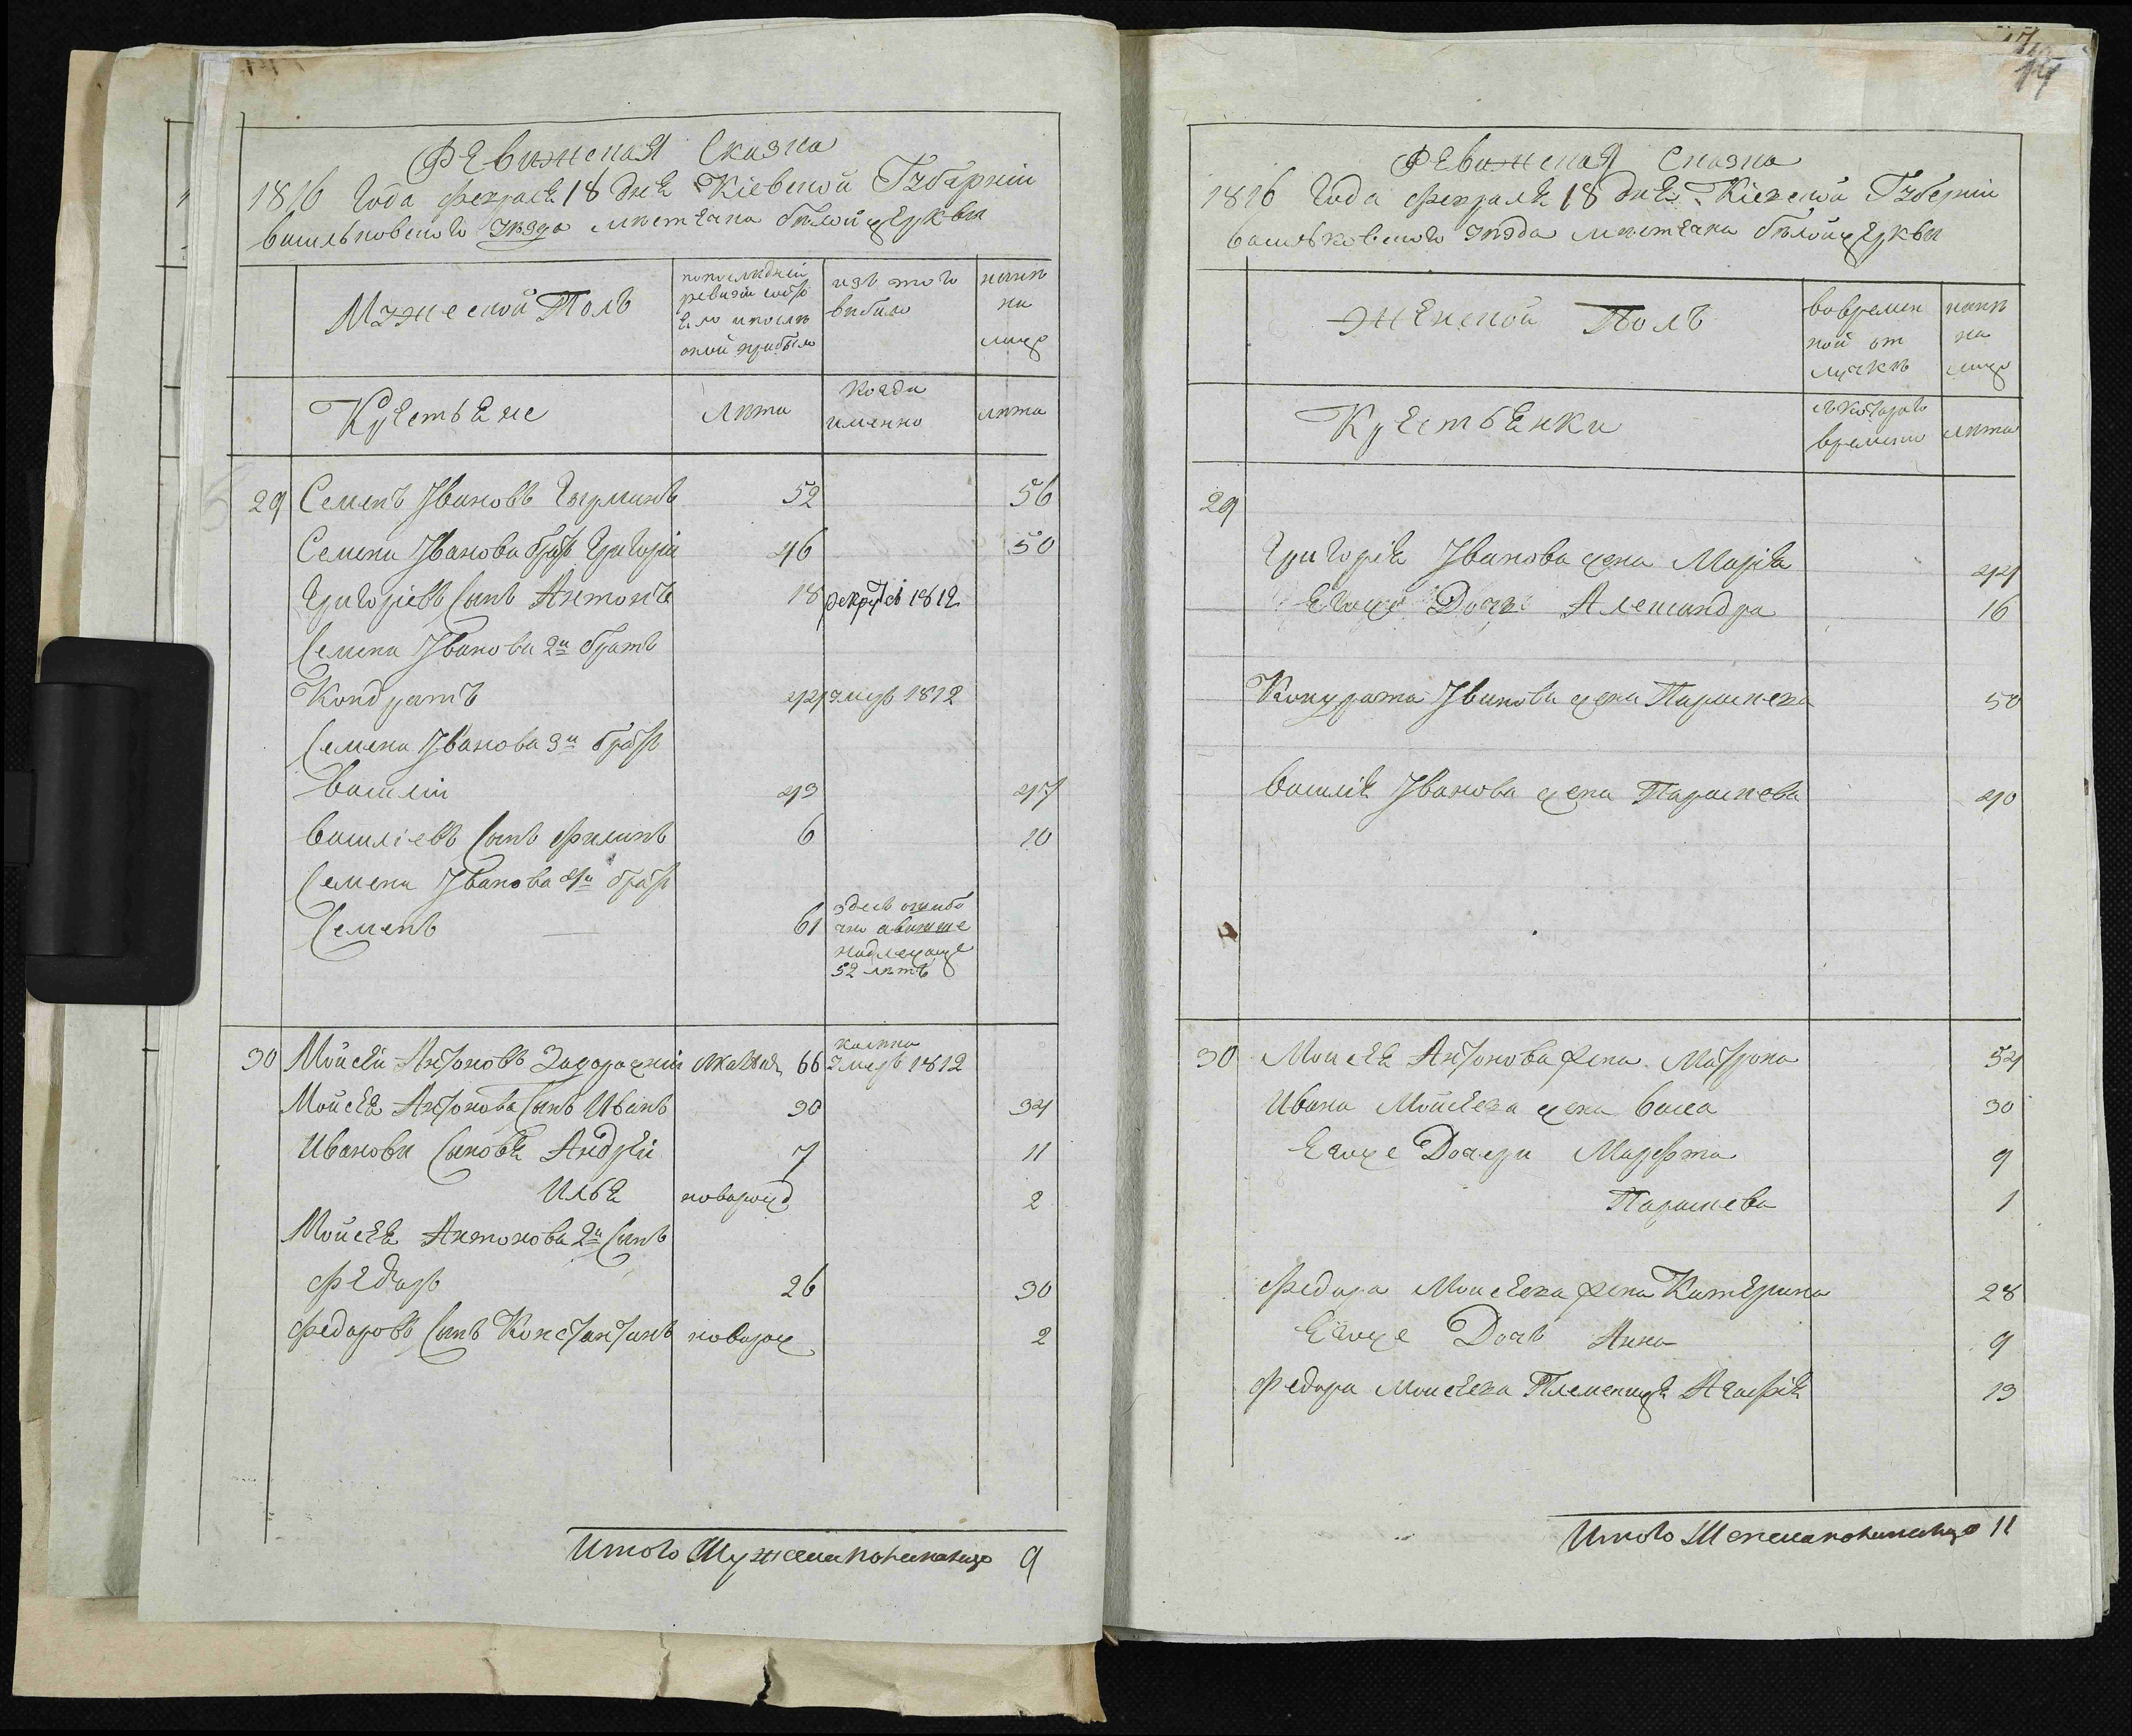 Ревижская Сказка
1816 Года февраля 18 дня Кіевской Губерніи
васильковского уезда местечка белойцеркви
Мужеской Полъ
попоследней
ревизіи состо
яло ипосле
оной прибыло
изъ того
выбыло
ныне
на
лицо
Крестьяне
Лета
когда
именно
лета
29 Семенъ Ивановъ 52 56
Семена Иванова братъ Григорій 46 50
Григоріевъ Сынъ Антонъ 18 рекрутъ 1812
Семена Иванова 2й братъ
Кондратъ 44 умеръ 1812
Семена Иванова 3й братъ
Василій 43 47
Василіевъ Сынъ Филипъ 6 10
Семена Иванова 4й братъ
Семенъ 61 здесь ошибо
чно авыше
надлежаще
52 летъ
30 Мойсей Антоновъ 66 умеръ 1812
Мойсея Антонова Сынъ Иванъ 30 34
Иванови Сыновя Андрей 7 11
Ильяноворожд 2
Мойсея Антонова 2й Сынъ
Федоръ 26 30
Федоровъ Сынъ Константинъ новорож 2
Итого Мужеска пола налицо 9
17
Ревижская Сказка
1816 Года февраля 18 дня Кіевской Губерніи
васильковского уезда местечка белойцеркви
Женской Полъ
вовремен
ной от
лучке
ныне
на
лицо
Крестьянки
скоторого
времени
лета
29
Григорія Иванова жена Марія 44
Егоже Дочь Александра 16
Кондрата Иванова жена Параскева 50
Василія Иванова жена Параскева 40
30 Мойсея Антонова жена Матрона 54
Ивана Мойсеева жена Васса 30
Егоже Дочери Марфта 9
Параскева 1
Федора Мойсеева жена Катерина 28
Егоже Дочь Анна 9
Федора Мойсеева Племеница Агафія 13
Итого Женска пола налицо 11